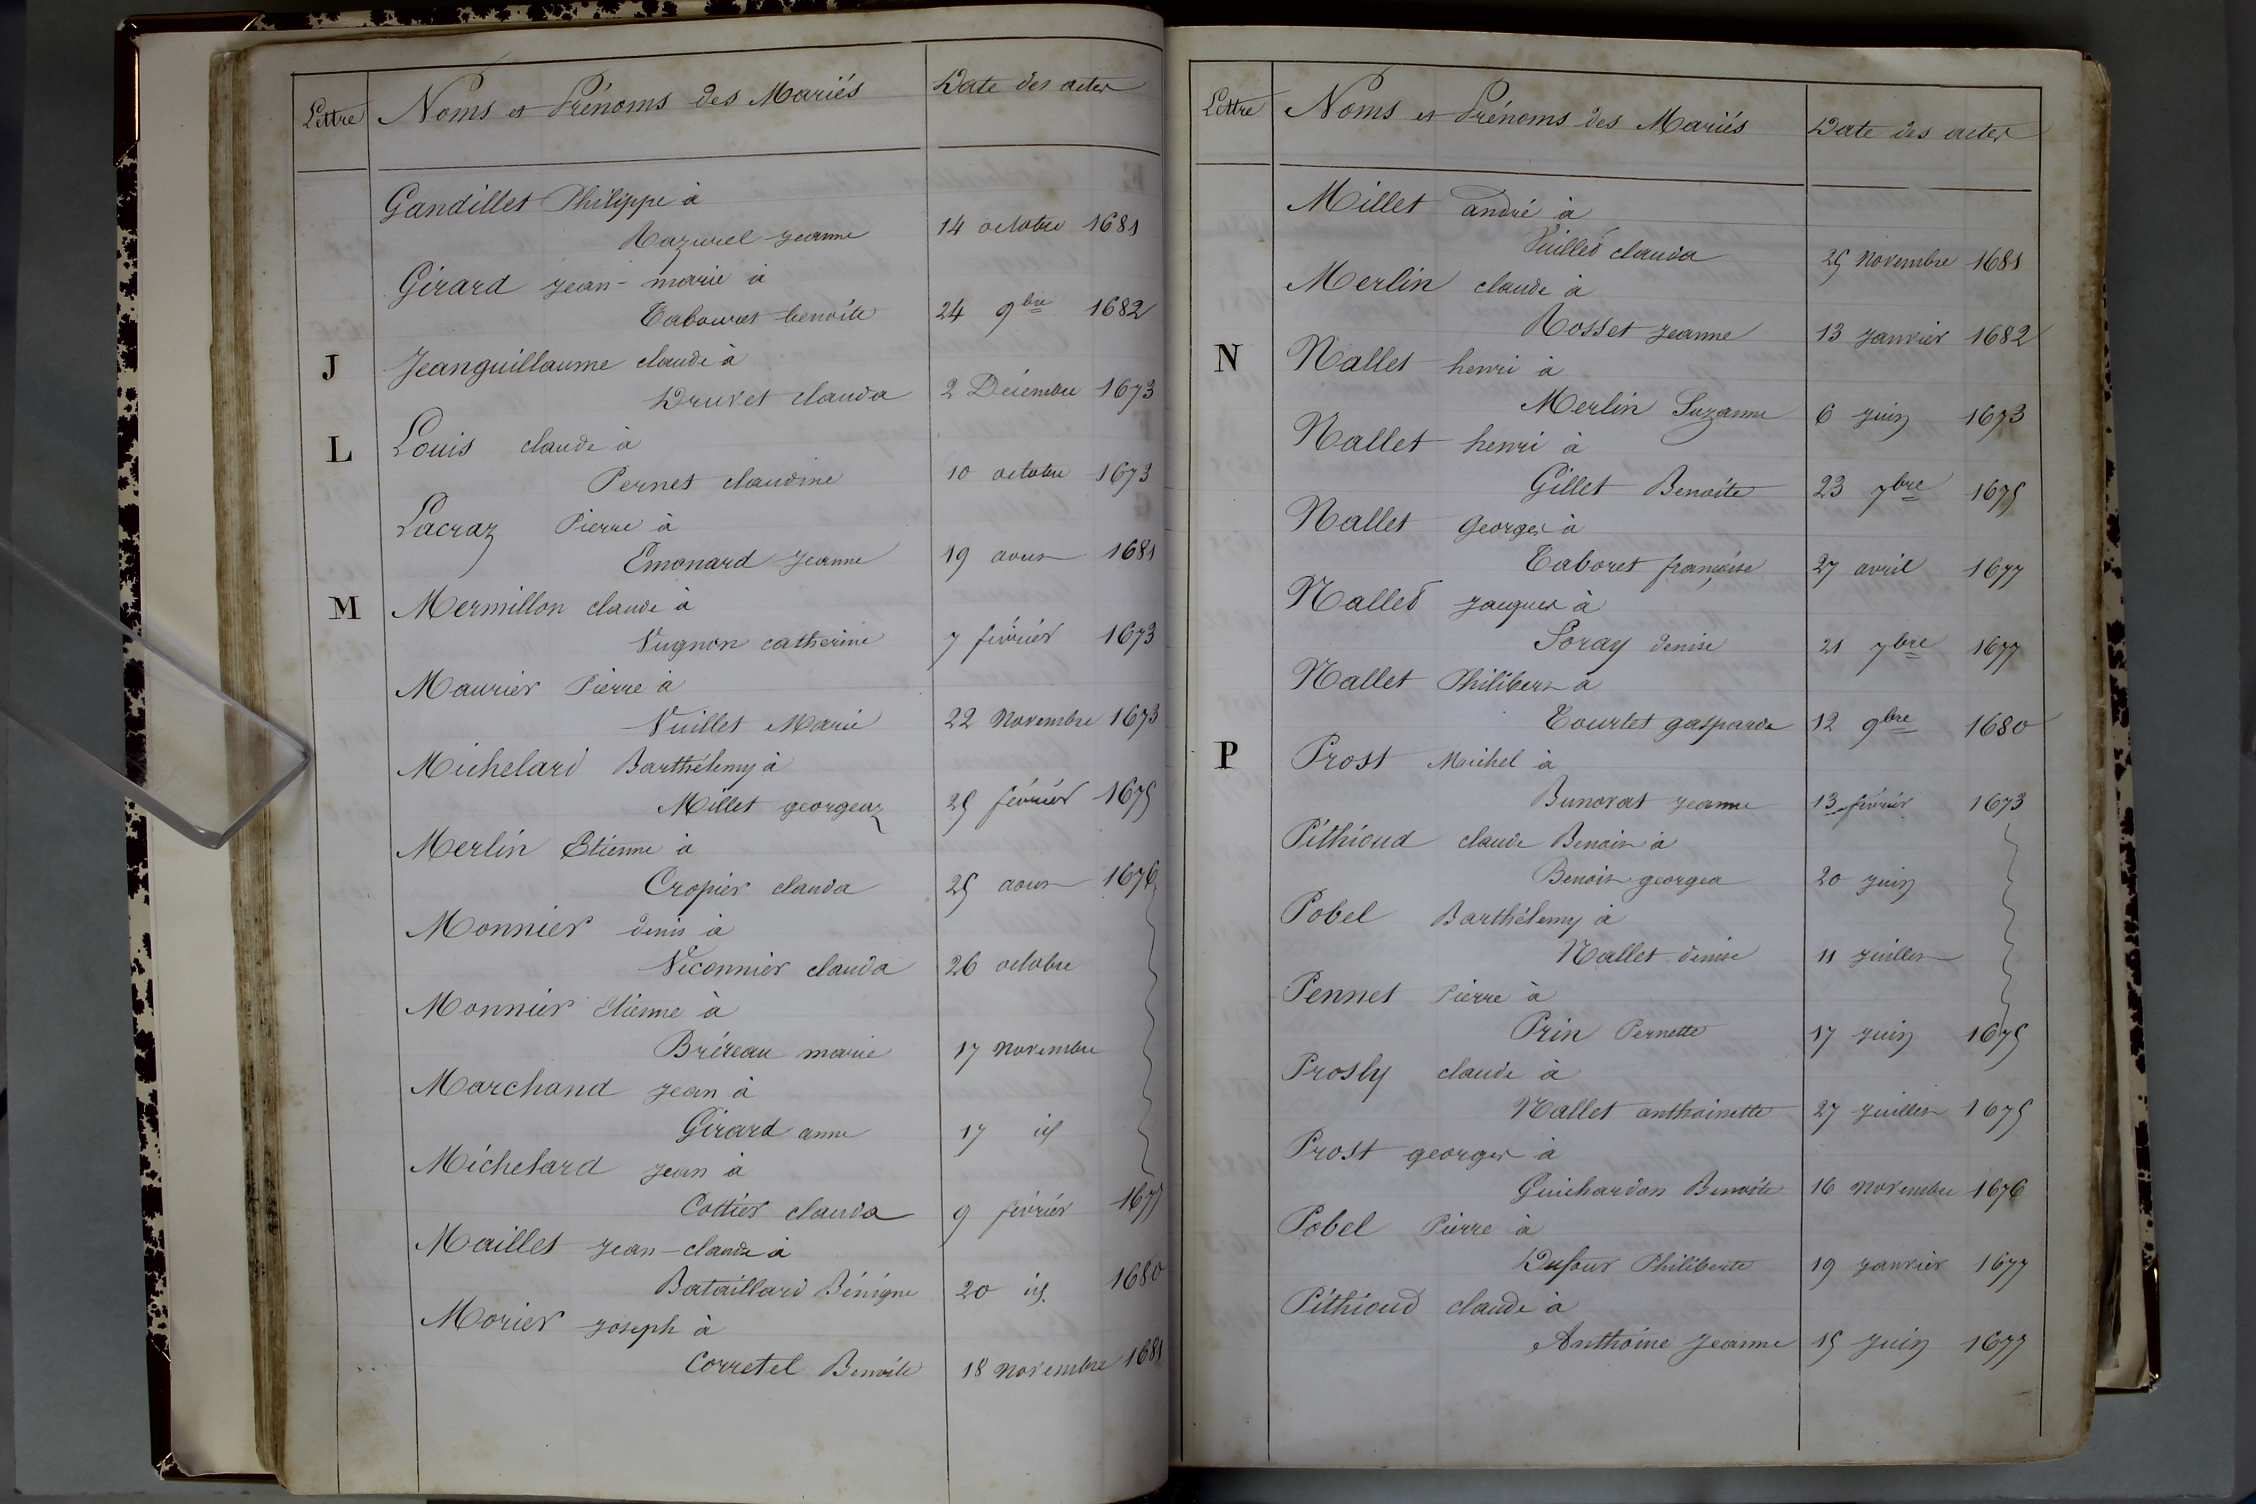 Lettre Noms et Prénoms des Mariés Date des actes
Gandillet Philippe à
Mazurel jeanne 14 octobre 1681
Girard jean-marie à
Tabouret benoîte 24 9bre 1682
J Jeanguillaume claude à
Druvet clauda 2 Décembre 1673
L Louis claude à
Pernet claudine 10 octobre 1673
Lacraz Pierre à
Emonard jeanne 19 aout 1681
M Mermillon claude à
Vugnon catherine 7 février 1673
Maurier Pierre à
Vuillet Marie 22 Novembre 1673
Michelard Barthélemy à
Millet georgeaz 25 février 1675
Merlin Etienne à
Cropier clauda 25 aout 1676
Monnier denis à
Viconnier clauda 26 octobre
Monnier Etienne à
Bréreau marie 17 novembre
Marchand jean à
Girard anne 17 id
Michelard jean à
Cottier clauda 9 février 1677
Maillet jean-claude à
Bataillard Bénigne 20 id. 1680
Morier joseph à
Corretel Benoîte 18 novembre 1681
Lettre Noms et Prénoms des Mariés Date des actes
Millet andré à
Vuillet clauda 25 Novembre 1681
Merlin claude à
Rosset jeanne 13 janvier 1682
N Nallet henri à
Merlin Suzanne 6 juin 1673
Nallet henri à
Gillet Benoîte 23 7bre 1675
Nallet Georges à
Taboret françoise 27 avril 1677
Nallet jacques à
Soray denise 21 7bre 1677
Nallet Philibert à
Tourtet gasparde 12 9bre 1680
P Prost Michel à
Bunorat jeanne 13 février 1673
Pithioud claude Benoit à
Benoit georgea 20 juin
Pobel Barthélemy à
Nallet denise 11 juillet
Pennet Pierre à
Prin Pernette 17 juin 1675
Prosly claude à
Nallet anthoinette 27 juillet 1675
Prost georges à
Guichardon Benoîte 16 novembre 1676
Pobel Pierre à
Dufour Philiberte 19 janvier 1677
Pithioud claude à
Anthoine Jeanne 15 juin 1677